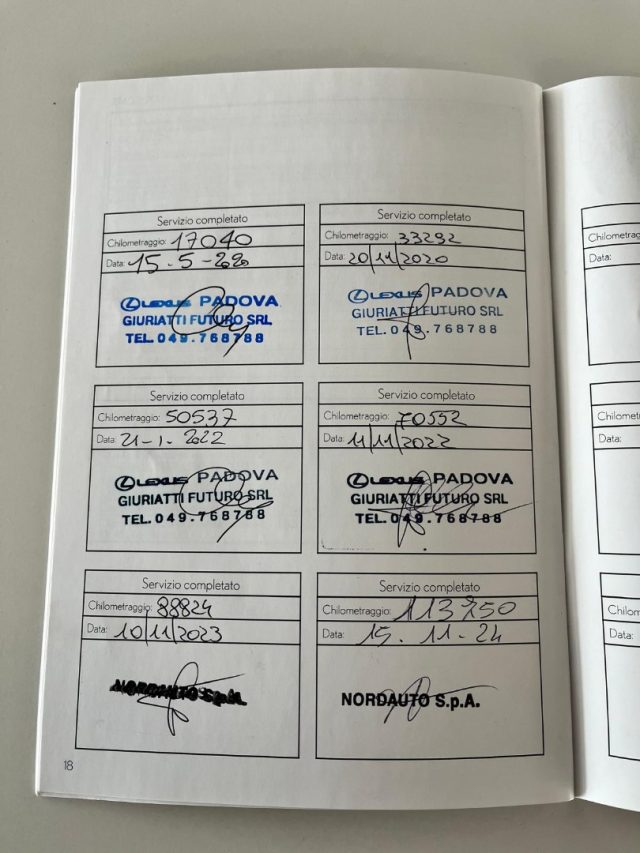 Servizio completato
Chilometraggio: 17040
Data: 15-5-2020
LEXUS PADOVA
GIURIATTI FUTURO SRL
TEL. 049.768788
Servizio completato
Chilometraggio: 33292
Data: 20/11/2020
LEXUS PADOVA
GIURIATTI FUTURO SRL
TEL. 049.768788
Servizio completato
Chilometraggio: 50537
Data: 21-1. 2022
LEXUS PADOVA
GIURIATTI FUTURO SRL
TEL. 049.768788
Servizio completato
Chilometraggio: 70552
Data: 11/11/2022
LEXUS PADOVA
GIURIATTI FUTURO SRL
TEL. 049.768788
Servizio completato
Chilometraggio: 88824
Data: 10/11/2023
NORDAUTO S.p.A.
Servizio completato
Chilometraggio: 113750
Data: 15.11-24
NORDAUTO S.p.A.
18
Chilometrag
Data:
Chilomet
Data:
Chilom
Data: